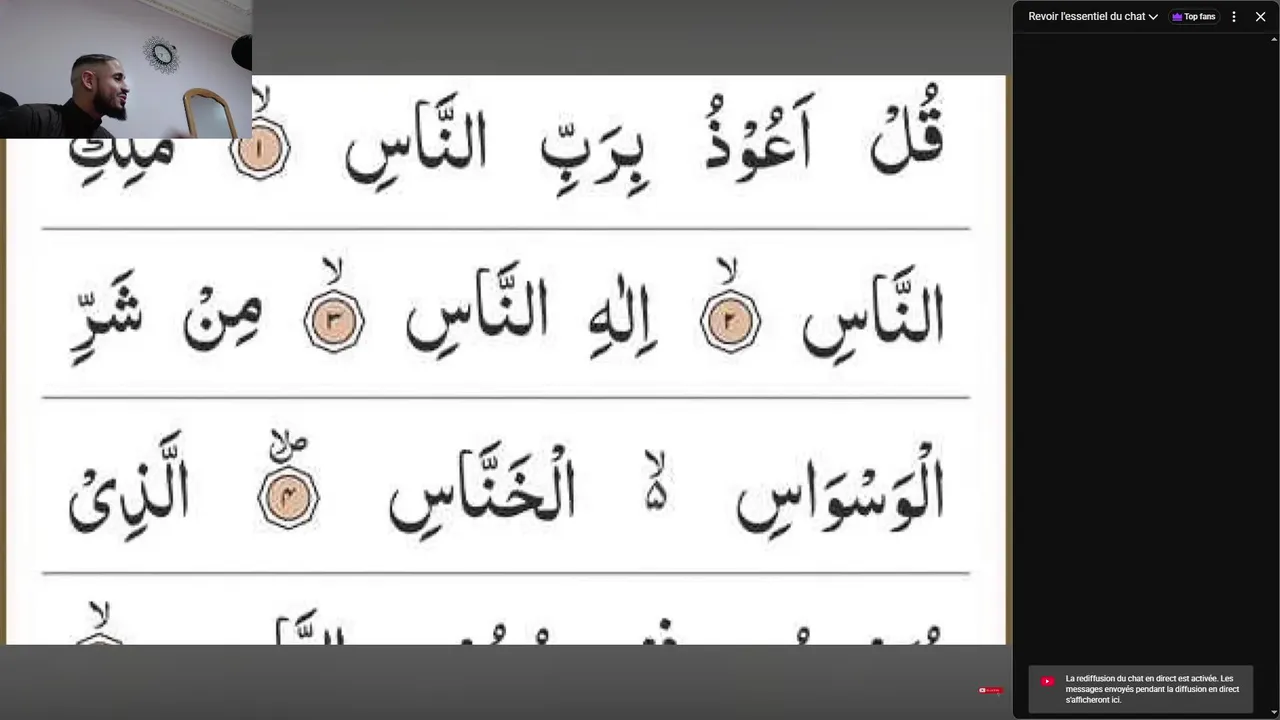 قُلْ اَعُوْذُ بِرَبِّ النَّاسِ ۙ ۱ مَلِكِ
النَّاسِ ۙ ۲ اِلٰهِ النَّاسِ ۙ ۳ مِنْ شَرِّ
الْوَسْوَاسِ ۙ ۵ الْخَنَّاسِ ۴ الَّذِیْ
Revoir l'essentiel du chat
Top fans
La rediffusion du chat en direct est activée. Les
messages envoyés pendant la diffusion en direct
s'afficheront ici.